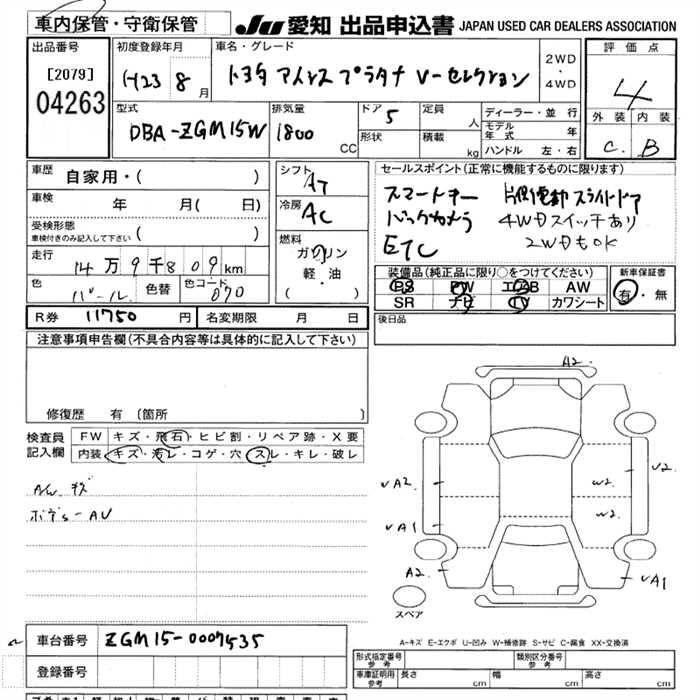 車内保管・守衛保管
JU 愛知 出品申込書 JAPAN USED CAR DEALERS ASSOCIATION
出品番号 初度登録年月 車名・グレード 評価点
[2079] H23 8月 トヨタ アイシス プラタナ V-セレクション 2WD・4WD 4
04263
型式 排気量 ドア 定員 ディーラー・並行 外装 内装
DBA-ZGM15W 1800 CC 5 人 モデル年式 年 C B
形状 積載 kg ハンドル 左・右
車歴 自家用・( ) シフト AT セールスポイント(正常に機能するものに限ります)
車検 年 月( 日) 冷房 AC スマートキー 片側電動スライドドア
受検形態 バックカメラ 4WDスイッチあり
車検付きのみ記入して下さい ( ) 燃料 ETC 2WDもOK
走行 14万9千809km ガソリン
軽・油
( )
色 パール 色替 色コード 070 装備品(純正品に限り○をつけてください) 新車保証書
PS PW エアB AW 有・無
SR ナビ TV カワシート
R券 11750円 名変期限 月 日 後日品
注意事項申告欄(不具合内容等は具体的に記入して下さい)
修復歴 有 [箇所 ]
検査員記入欄 FW キズ・飛石・ヒビ割・リペア跡・X要
内装 キズ・汚レ・コゲ・穴・スレ・キレ・破レ
AW キズ
ボデー AU
A2
A2 W2 U2
A1 W2
A2 A1
スペア
A-キズ E-エクボ U-凹み W-補修跡 S-サビ C-腐食 XX-交換済
車台番号 ZGM15-0007535
登録番号
形式指定番号 参考 類別区分番号 参考
車庫証明用 参考 長さ cm 幅 cm 高さ cm